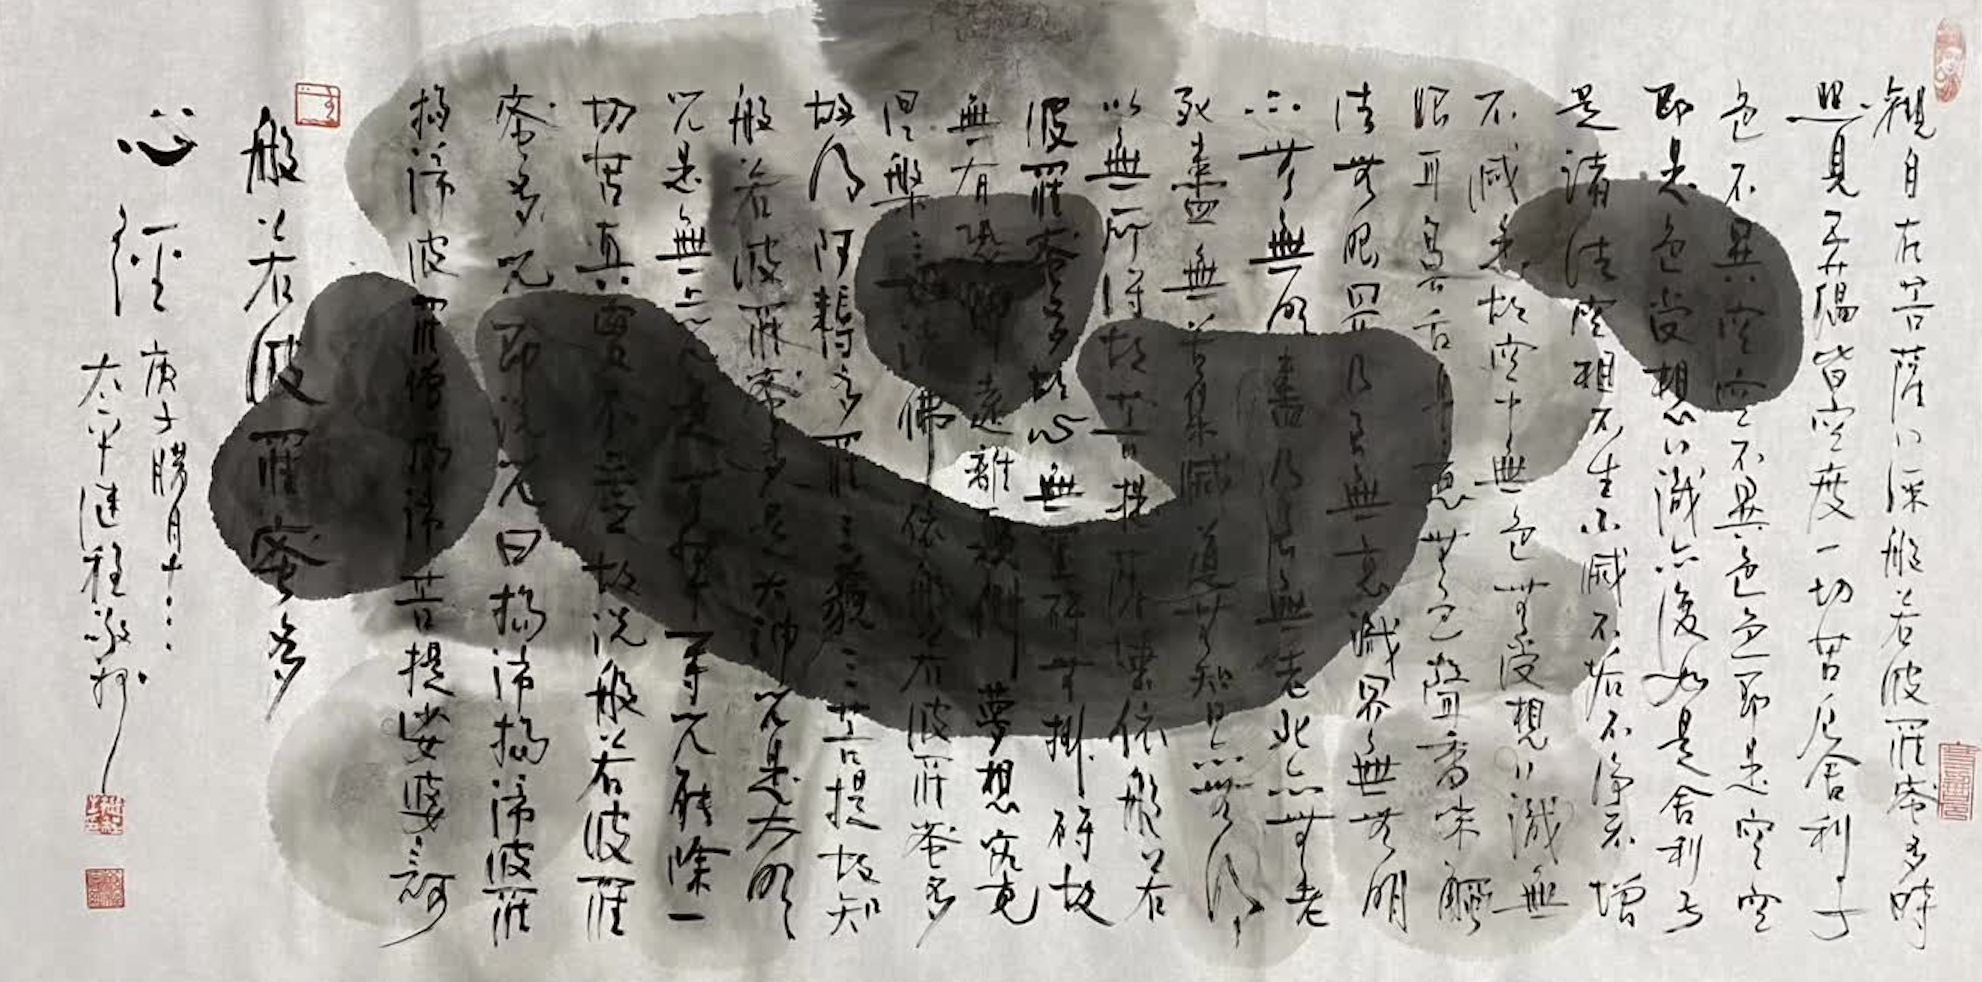 觀自在菩薩行深般若波羅蜜多時
照見五蘊皆空度一切苦厄舍利子
色不異空空不異色色即是空空
即是色受想行識亦復如是舍利子
是諸法空相不生不滅不垢不淨不增
不減是故空中無色無受想行識無
眼耳鼻舌身意無色聲香味觸
法無眼界乃至無意識界無無明
亦無無明盡乃至無老死亦無老
死盡無苦集滅道無智亦無得
以無所得故菩提薩埵依般若
波羅蜜多故心無罣礙無掛礙故
無有恐怖遠離顛倒夢想究竟
涅槃三世諸佛依般若波羅蜜多
故得阿耨多羅三藐三菩提故知
般若波羅蜜多是大神咒是大明
咒是無上咒是無等等咒能除一
切苦真實不虛故說般若波羅
蜜多咒即說咒曰揭諦揭諦波羅
揭諦波羅僧揭諦菩提娑婆訶
般若波羅蜜多
心經
庚子腊月十
太平程敬抄